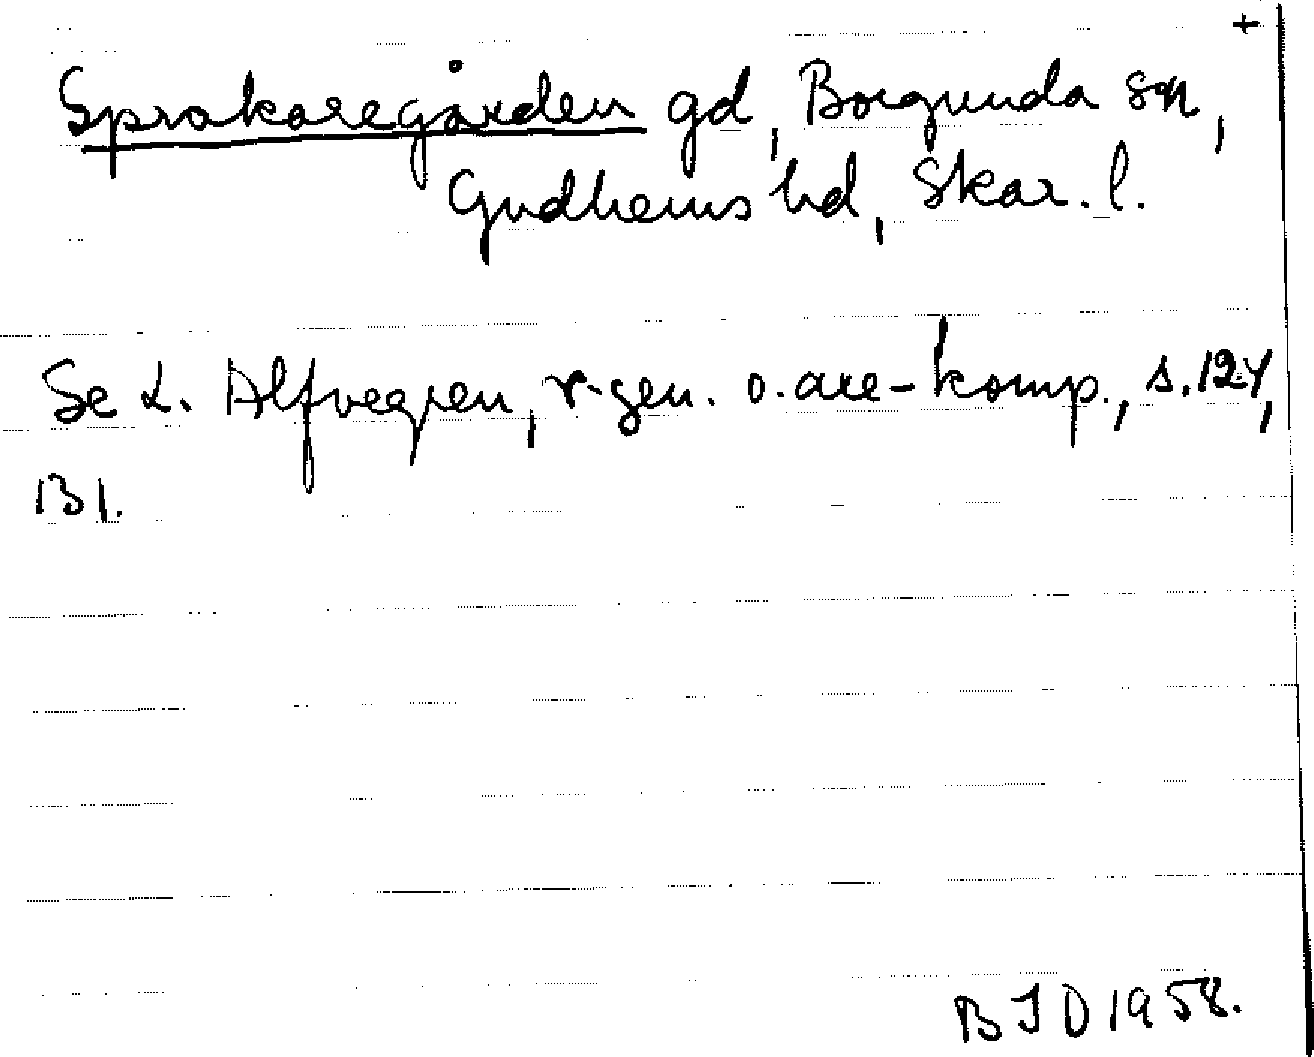 +
Sprakaregården gd, Borgunda sn,
Gudhems hd, Skar. l.
Se L. Alfvegren, r-gen. o. are-komp., s. 124,
131.
B J D 1958.